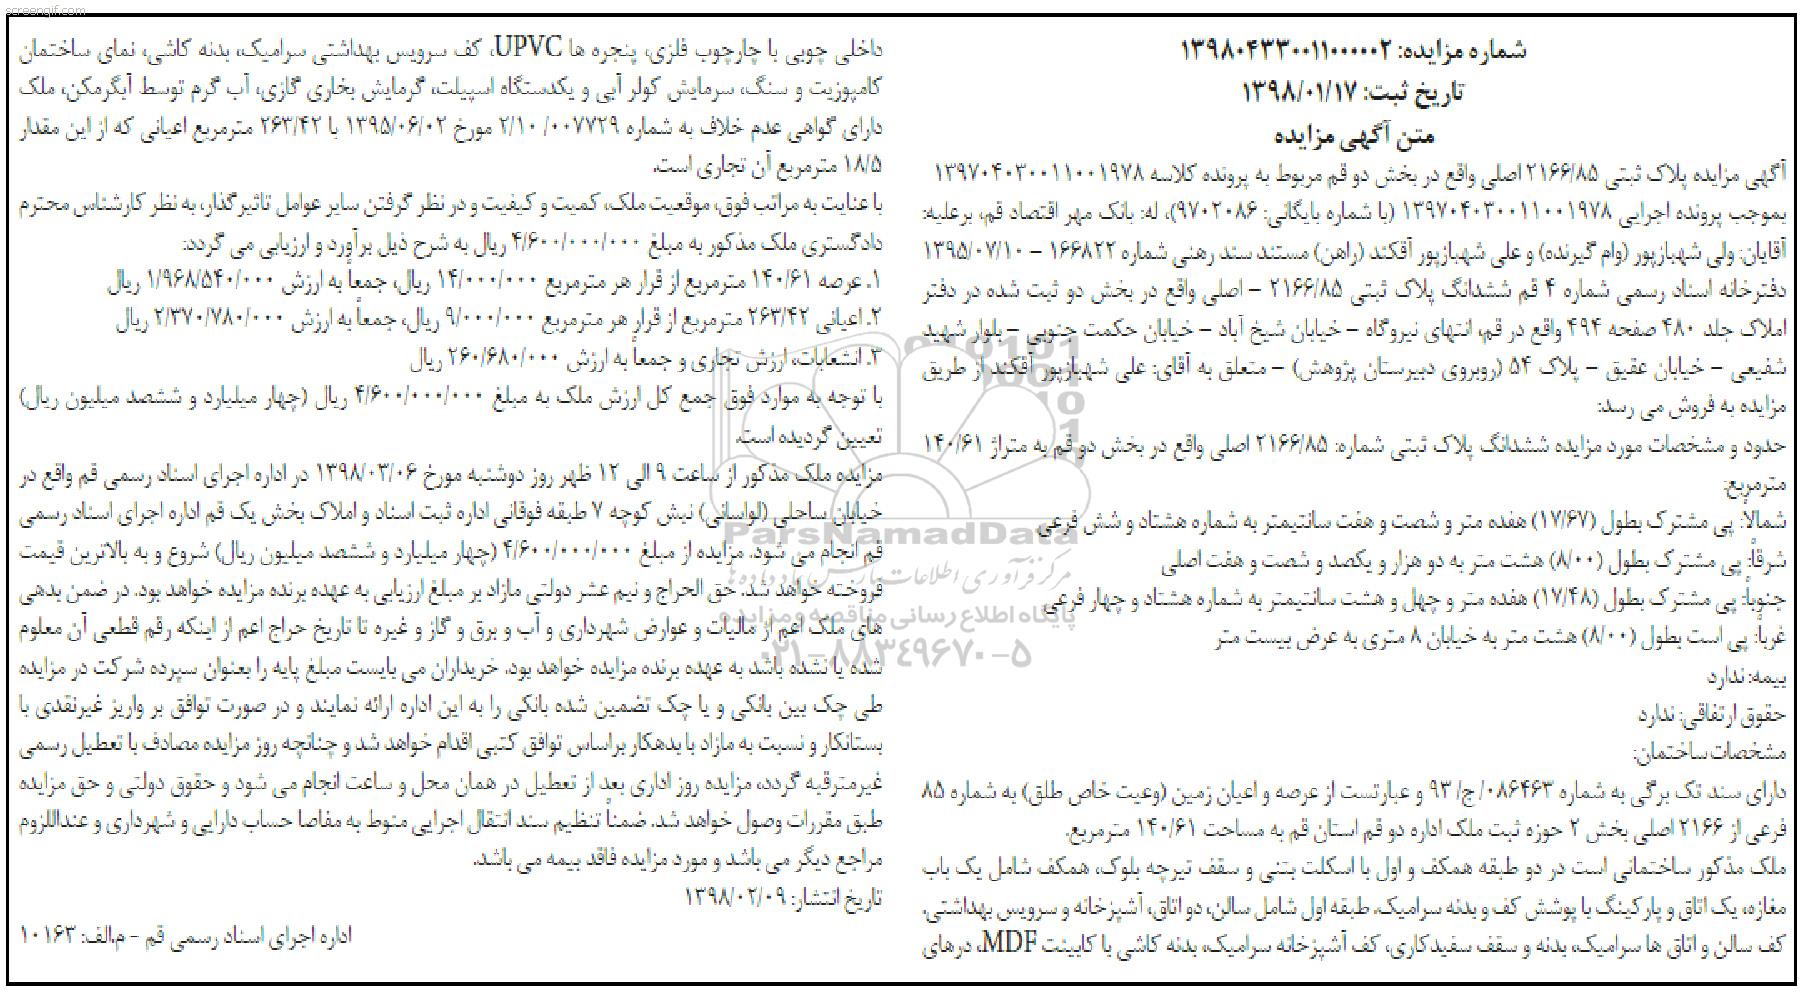 screengif.com
شماره مزایده: ۱۳۹۸۰۴۳۳۰۰۱۱۰۰۰۰۰۲
تاریخ ثبت: ۱۳۹۸/۰۱/۱۷
متن آگهی مزایده
آگهی مزایده پلاک ثبتی ۲۱۶۶/۸۵ اصلی واقع در بخش دو قم مربوط به پرونده کلاسه ۱۳۹۷۰۴۰۳۰۰۱۱۰۰۱۹۷۸
بموجب پرونده اجرایی ۱۳۹۷۰۴۰۳۰۰۱۱۰۰۱۹۷۸ (با شماره بایگانی: ۹۷۰۲۰۸۶)، له: بانک مهر اقتصاد قم، برعلیه:
آقایان: ولی شهبازپور (وام گیرنده) و علی شهبازپور آقکند (راهن) مستند سند رهنی شماره ۱۶۶۸۲۲ – ۱۳۹۵/۰۷/۱۰
دفترخانه اسناد رسمی شماره ۴ قم ششدانگ پلاک ثبتی ۲۱۶۶/۸۵ – اصلی واقع در بخش دو ثبت شده در دفتر
املاک جلد ۴۸۰ صفحه ۴۹۴ واقع در قم، انتهای نیروگاه – خیابان شیخ آباد – خیابان حکمت جنوبی – بلوار شهید
شفیعی – خیابان عقیق – پلاک ۵۴ (روبروی دبیرستان پژوهش) – متعلق به آقای: علی شهبازپور آقکند از طریق
مزایده به فروش می رسد:
حدود و مشخصات مورد مزایده ششدانگ پلاک ثبتی شماره: ۲۱۶۶/۸۵ اصلی واقع در بخش دو قم به متراژ ۱۴۰/۶۱
مترمربع:
شمالاً: پی مشترک بطول (۱۷/۶۷) هفده متر و شصت و هفت سانتیمتر به شماره هشتاد و شش فرعی
شرقاً: پی مشترک بطول (۸/۰۰) هشت متر به دو هزار و یکصد و شصت و هفت اصلی
جنوباً: پی مشترک بطول (۱۷/۴۸) هفده متر و چهل و هشت سانتیمتر به شماره هشتاد و چهار فرعی
غرباً: پی است بطول (۸/۰۰) هشت متر به خیابان ۸ متری به عرض بیست متر
بیمه: ندارد
حقوق ارتفاقی: ندارد
مشخصات ساختمان:
دارای سند تک برگی به شماره ۰۸۶۴۶۳/ ج/ ۹۳ و عبارتست از عرصه و اعیان زمین (وعیت خاص طلق) به شماره ۸۵
فرعی از ۲۱۶۶ اصلی بخش ۲ حوزه ثبت ملک اداره دو قم استان قم به مساحت ۱۴۰/۶۱ مترمربع.
ملک مذکور ساختمانی است در دو طبقه همکف و اول با اسکلت بتنی و سقف تیرچه بلوک، همکف شامل یک باب
مغازه، یک اتاق و پارکینگ با پوشش کف و بدنه سرامیک. طبقه اول شامل سالن، دو اتاق، آشپزخانه و سرویس بهداشتی.
کف سالن و اتاق ها سرامیک، بدنه و سقف سفیدکاری، کف آشپزخانه سرامیک، بدنه کاشی با کابینت MDF، درهای
داخلی چوبی با چارچوب فلزی، پنجره ها UPVC، کف سرویس بهداشتی سرامیک، بدنه کاشی، نمای ساختمان
کامپوزیت و سنگ، سرمایش کولر آبی و یکدستگاه اسپیلت، گرمایش بخاری گازی، آب گرم توسط آبگرمکن، ملک
دارای گواهی عدم خلاف به شماره ۰۰۷۷۲۹/ ۲/۱۰ مورخ ۱۳۹۵/۰۶/۰۲ با ۲۶۳/۴۲ مترمربع اعیانی که از این مقدار
۱۸/۵ مترمربع آن تجاری است.
با عنایت به مراتب فوق، موقعیت ملک، کمیت و کیفیت و در نظر گرفتن سایر عوامل تاثیرگذار، به نظر کارشناس محترم
دادگستری ملک مذکور به مبلغ ۴/۶۰۰/۰۰۰/۰۰۰ ریال به شرح ذیل برآورد و ارزیابی می گردد:
۱. عرصه ۱۴۰/۶۱ مترمربع از قرار هر مترمربع ۱۴/۰۰۰/۰۰۰ ریال، جمعاً به ارزش ۱/۹۶۸/۵۴۰/۰۰۰ ریال
۲. اعیانی ۲۶۳/۴۲ مترمربع از قرار هر مترمربع ۹/۰۰۰/۰۰۰ ریال، جمعاً به ارزش ۲/۳۷۰/۷۸۰/۰۰۰ ریال
۳. انشعابات، ارزش تجاری و جمعاً به ارزش ۲۶۰/۶۸۰/۰۰۰ ریال
با توجه به موارد فوق جمع کل ارزش ملک به مبلغ ۴/۶۰۰/۰۰۰/۰۰۰ ریال (چهار میلیارد و ششصد میلیون ریال)
تعیین گردیده است.
مزایده ملک مذکور از ساعت ۹ الی ۱۲ ظهر روز دوشنبه مورخ ۱۳۹۸/۰۳/۰۶ در اداره اجرای اسناد رسمی قم واقع در
خیابان ساحلی (لواسانی) نبش کوچه ۷ طبقه فوقانی اداره ثبت اسناد و املاک بخش یک قم اداره اجرای اسناد رسمی
قم انجام می شود. مزایده از مبلغ ۴/۶۰۰/۰۰۰/۰۰۰ (چهار میلیارد و ششصد میلیون ریال) شروع و به بالاترین قیمت
فروخته خواهد شد. حق الحراج و نیم عشر دولتی مازاد بر مبلغ ارزیابی به عهده برنده مزایده خواهد بود. در ضمن بدهی
های ملک اعم از مالیات و عوارض شهرداری و آب و برق و گاز و غیره تا تاریخ حراج اعم از اینکه رقم قطعی آن معلوم
شده یا نشده باشد به عهده برنده مزایده خواهد بود. خریداران می بایست مبلغ پایه را بعنوان سپرده شرکت در مزایده
طی چک بین بانکی و یا چک تضمین شده بانکی را به این اداره ارائه نمایند و در صورت توافق بر واریز غیرنقدی با
بستانکار و نسبت به مازاد با بدهکار براساس توافق کتبی اقدام خواهد شد و چنانچه روز مزایده مصادف با تعطیل رسمی
غیرمترقبه گردد، مزایده روز اداری بعد از تعطیل در همان محل و ساعت انجام می شود و حقوق دولتی و حق مزایده
طبق مقررات وصول خواهد شد. ضمناً تنظیم سند انتقال اجرایی منوط به مفاصا حساب دارایی و شهرداری و عنداللزوم
مراجع دیگر می باشد و مورد مزایده فاقد بیمه می باشد.
تاریخ انتشار: ۱۳۹۸/۰۲/۰۹
اداره اجرای اسناد رسمی قم – م.الف: ۱۰۱۶۳
ParsNamadData
مرکز فرآوری اطلاعات پارس نماد داده ها
پایگاه اطلاع رسانی مناقصه و مزایده
۰۲۱–۸۸۳۴۹۶۷۰–۵